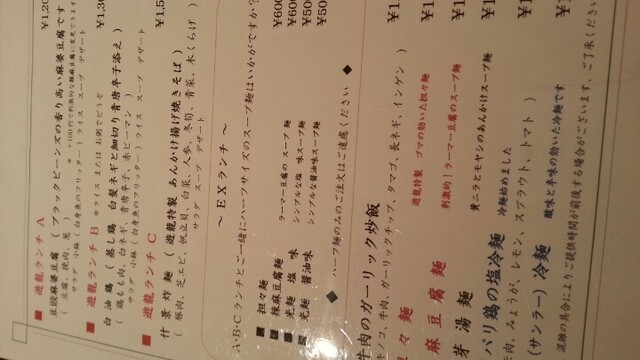 ■ 遊龍ランチ A ¥1,20
豆豉麻婆豆腐 ( ブラックビーンズの香り高い麻婆豆腐です
( 豆腐、挽肉、葱 ) ＊100円で刺激的な辣麻豆腐に変更できます
サラダ 小鉢 ( 白身魚のフリッター ) ライス スープ デザート
■ 遊龍ランチ B ※ライス または お粥でどうぞ ¥1,30
白油鶏 ( 蒸し鶏 白髪ネギと細切り青唐辛子添え )
( 鶏もも肉、白ネギ、青唐辛子、赤ピーマン )
サラダ 小鉢 ( 白身魚のフリッター ) ライス スープ デザート
■ 遊龍ランチ C ¥1,5
什景炸麺 ( 遊龍特製 あんかけ揚げ焼きそば )
( 豚肉、芝エビ、帆立貝、白菜、人参、冬筍、青菜、木くらげ )
サラダ スープ デザート
～ EXランチ ～
A・B・Cランチとご一緒にハーフサイズのスープ麺はいかがですか?
■ 担々麺 ¥600
■ 辣麻婆豆腐麺 ラーマー豆腐のスープ麺 ¥600
■ 光麺 塩味 シンプルな塩味スープ麺 ¥50
■ 光麺 醤油味 シンプルな醤油味スープ麺 ¥50
◆ ハーフ麺のみのご注文はご遠慮ください ◆
牛肉のガーリック炒飯 ¥1
ンコ、牛肉、ガーリックチップ、タマゴ、長ネギ、インゲン )
々麺 遊龍特製 ゴマの効いた担々麺 ¥1
麻豆腐麺 刺激的！ラーマー豆腐のスープ麺 ¥1
芽湯麺 黄ニラとモヤシのあんかけスープ麺 ¥1
バリ鶏の塩冷麺 冷麺始めました ¥1
牛肉、みょうが、レモン、スプラウト、トマト )
(サンラー) 冷麺 酸味と辛味の効いた冷麺です
混雑の具合によりご提供時間が前後する場合がございます、ご了承ください